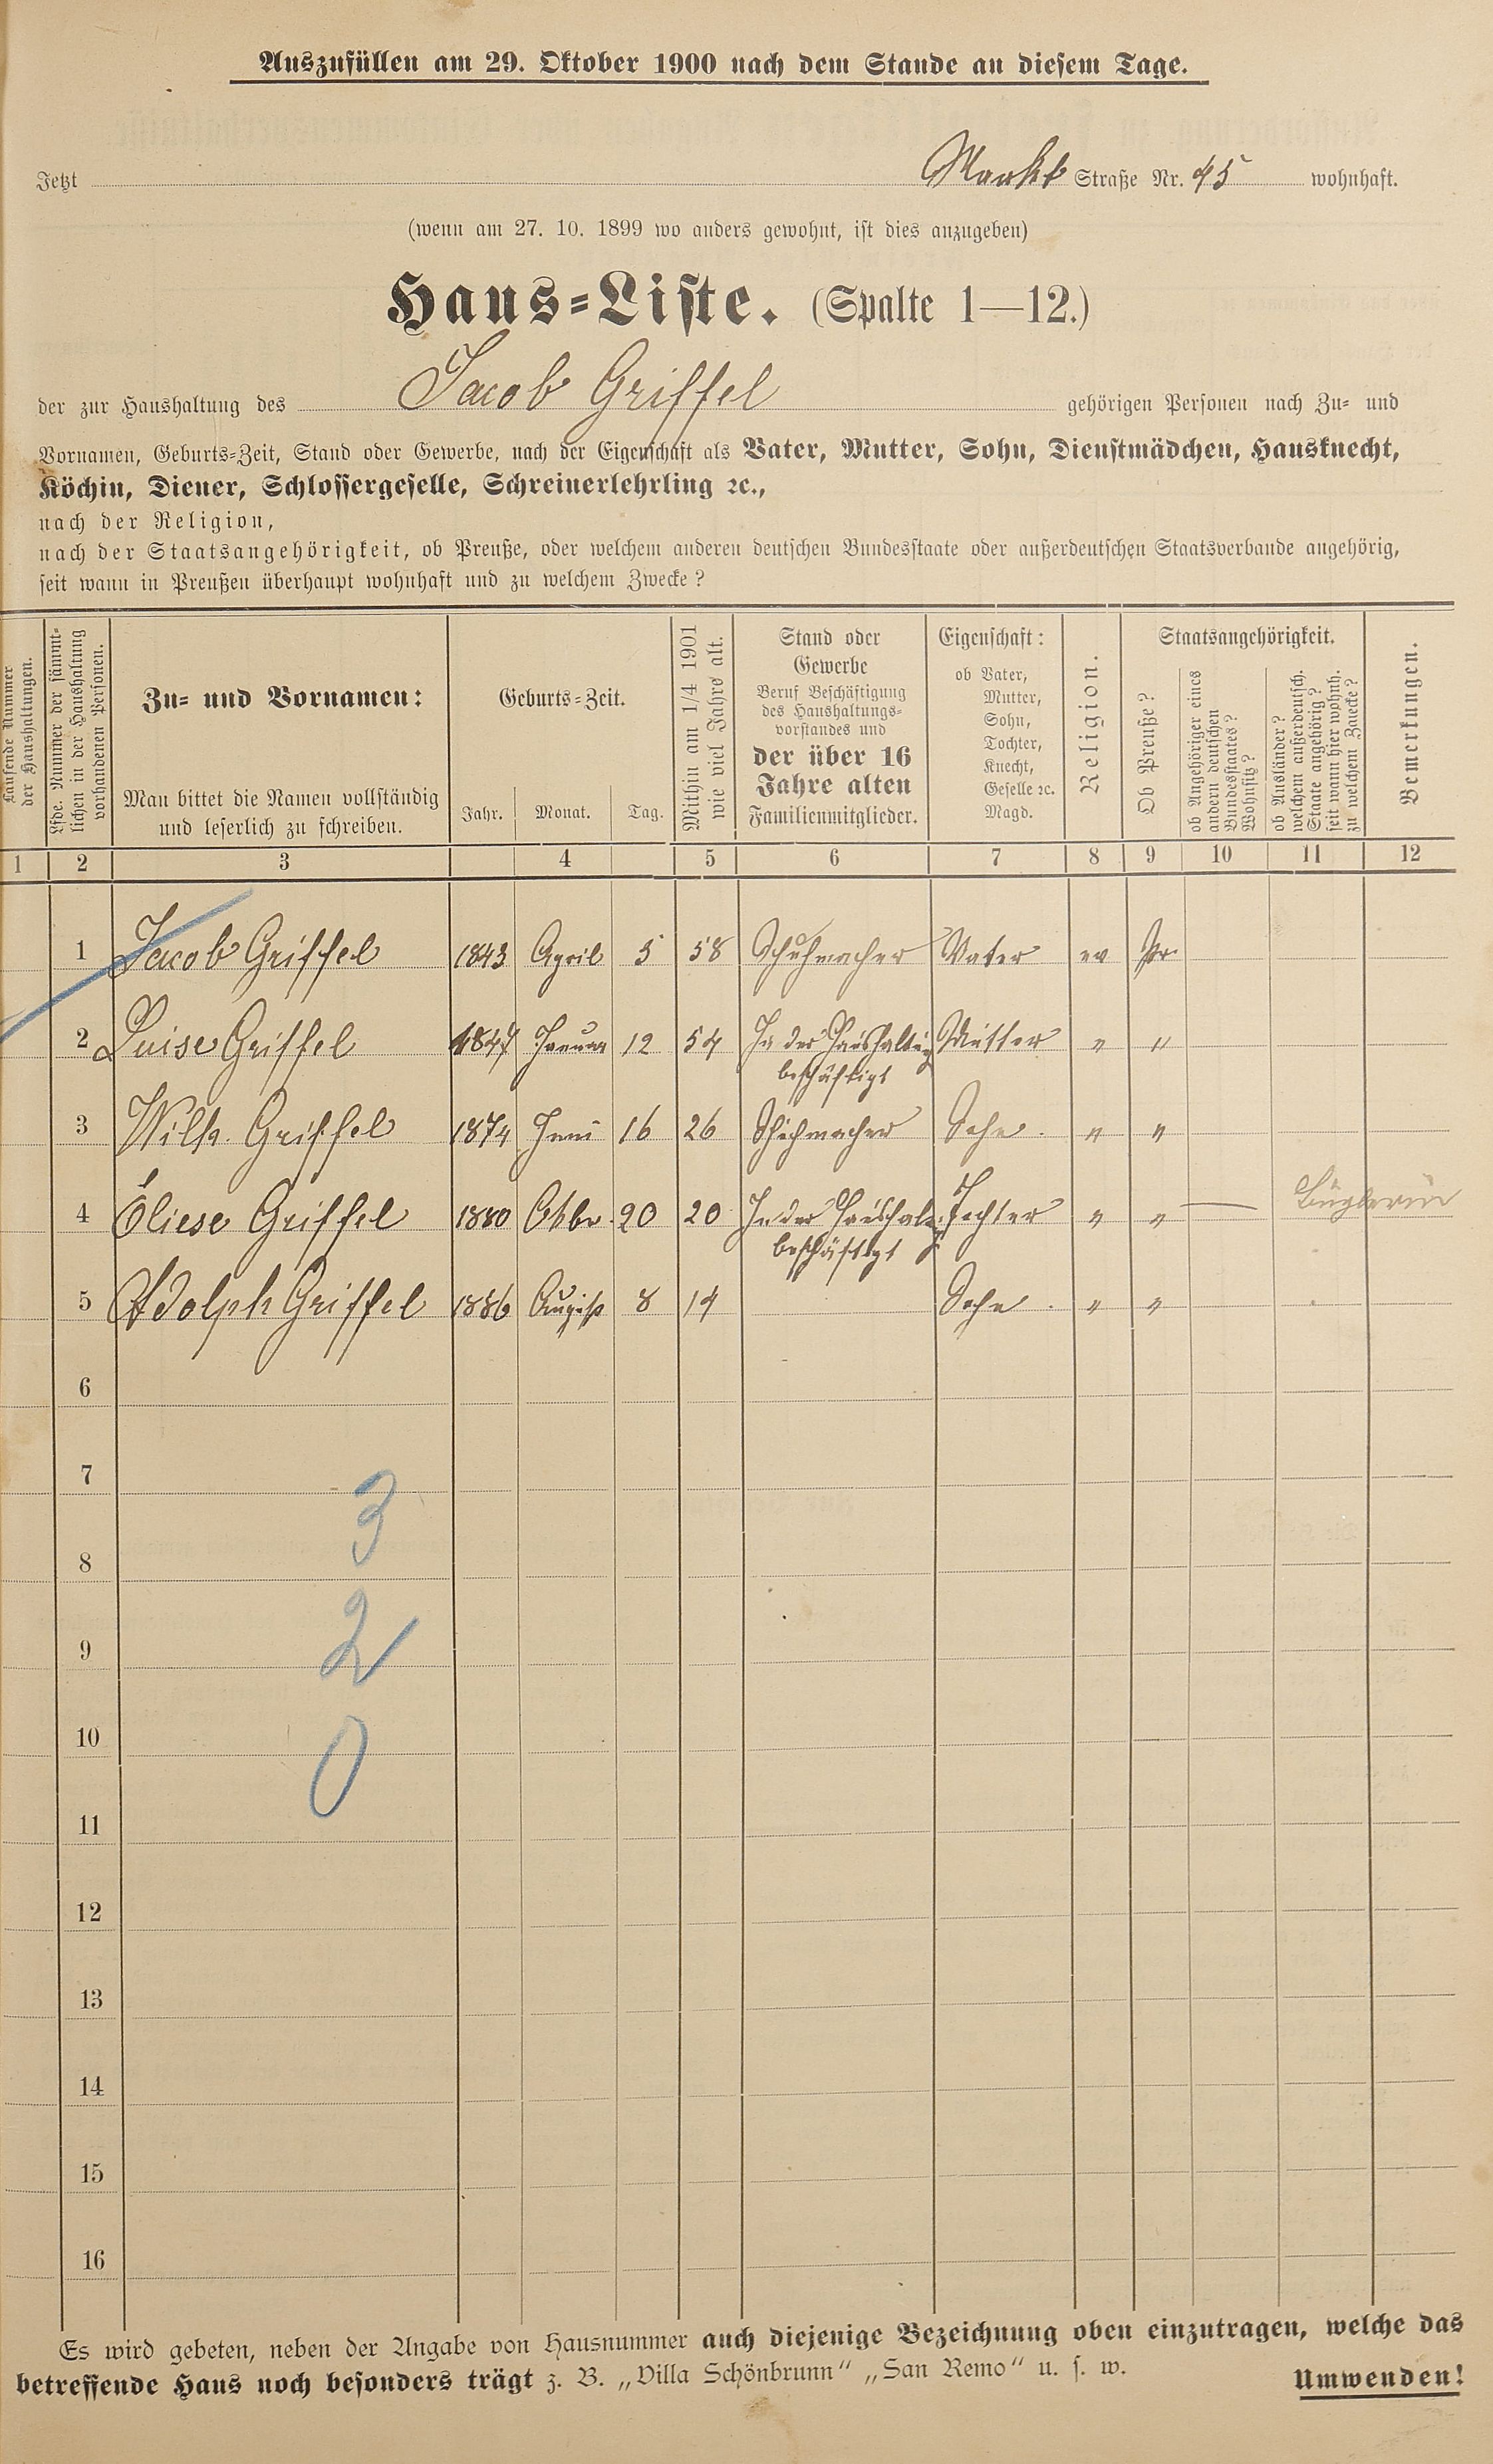 Auszufüllen am 29. Oktober 1900 nach dem Stande an diesem Tage.
Jetzt Markt Straße Nr. 45 wohnhaft.
(wenn am 27. 10. 1899 wo anders gewohnt, ist dies anzugeben)
Haus-Liste. (Spalte 1—12.)
der zur Haushaltung des Jacob Griffel gehörigen Personen nach Zu- und
Vornamen, Geburts-Zeit, Stand oder Gewerbe, nach der Eigenschaft als Vater, Mutter, Sohn, Dienstmädchen, Hausknecht,
Köchin, Diener, Schlossergeselle, Schreinerlehrling ꝛc.,
nach der Religion,
nach der Staatsangehörigkeit, ob Preuße, oder welchem anderen deutschen Bundesstaate oder außerdeutschen Staatsverbande angehörig,
seit wann in Preußen überhaupt wohnhaft und zu welchem Zwecke?
Laufende Nummer
der Haushaltungen.
Lfde. Nummer der sämmt-
lichen in der Haushaltung
vorhandenen Personen.
Zu- und Vornamen:
Man bittet die Namen vollständig
und leserlich zu schreiben.
Geburts-Zeit.
Jahr. Monat. Tag.
Mithin am 1/4 1901
wie viel Jahre alt.
Stand oder
Gewerbe
Beruf Beschäftigung
des Haushaltungs-
vorstandes und
der über 16
Jahre alten
Familienmitglieder.
Eigenschaft:
ob Vater,
Mutter,
Sohn,
Tochter,
Knecht,
Geselle ꝛc.
Magd.
Religion.
Staatsangehörigkeit.
Ob Preuße?
ob Angehöriger eines
andern deutschen
Bundesstaates?
Wohnsitz?
ob Ausländer?
welchem außerdeutsch.
Staate angehörig?
seit wann hier wohnh.
zu welchem Zwecke?
Bemerkungen.
1 2 3 4 5 6 7 8 9 10 11 12
1 Jacob Griffel 1843 April 5 58 Schuhmacher Vater ev Pr.
2 Luise Griffel 1847 Januar 12 54 In der Haushaltung Mutter " "
beschäftigt
3 Wilh. Griffel 1874 Juni 16 26 Schuhmacher Sohn. " "
4 Eliese Griffel 1880 Otbr. 20 20 In der Haushaltg Tochter " " — Büglerin
beschäftigt
5 Adolph Griffel 1886 August 8 14 Sohn. " "
6
7
3
8
9
2
10
0
11
12
13
14
15
16
Es wird gebeten, neben der Angabe von Hausnummer auch diejenige Bezeichnung oben einzutragen, welche das
betreffende Haus noch besonders trägt z. B. „Villa Schönbrunn" „San Remo" u. s. w.
Umwenden!